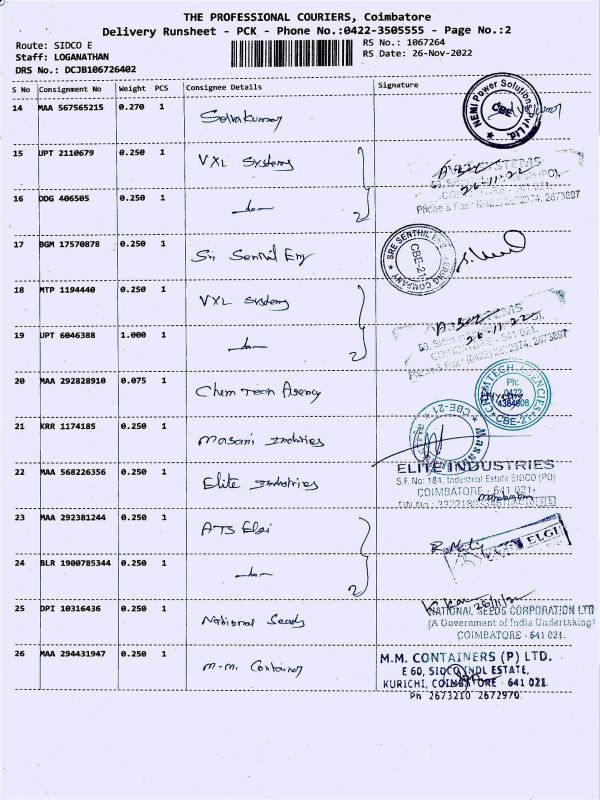 THE PROFESSIONAL COURIERS, Coimbatore
Delivery Runsheet - PCK - Phone No.:0422-3505555 - Page No.:2
Route: SIDCO E
RS No.: 1067264
Staff: LOGANATHAN
RS Date: 26-Nov-2022
DRS No.: DCJB106726402
S No Consignment No Weight PCS Consignee Details Signature
14 MAA 567565215 0.270 1 Selvakumar
NEMI Power Solutions Pvt Ltd. CBE
15 UPT 2110679 0.250 1 VXL Systems
26-11-22
16 DDG 406505 0.250 1 —do—
17 BGM 17570878 0.250 1 Sri Senthil Eng
SRE SENTHIL ENGINEERING COMPANY CBE-21
18 MTP 1194440 0.250 1 VXL Systems
26-11-22
19 UPT 6046388 1.000 1 —do—
20 MAA 292828910 0.075 1 Chem Tech Agency
CHEMTECH AGENCIES Ph: 0422 CBE-21
21 KRR 1174185 0.250 1 Masani Industries
CBE-21
22 MAA 568226356 0.250 1 Elite Industries
ELITE INDUSTRIES
S.F. No: 184, Industrial Estate SIDCO (PO)
COIMBATORE - 641 021.
23 MAA 292381244 0.250 1 ATS Elgi
ELGI
24 BLR 1900785344 0.250 1 —do—
25 DPI 10316436 0.250 1 National Seeds
26/11/22
NATIONAL SEEDS CORPORATION LTD
(A Government of India Undertaking)
COIMBATORE - 641 021.
26 MAA 294431947 0.250 1 M.M. Container
M.M. CONTAINERS (P) LTD.
E 60, SIDCO INDL ESTATE,
KURICHI, COIMBATORE - 641 021
Ph 2673210 2672970